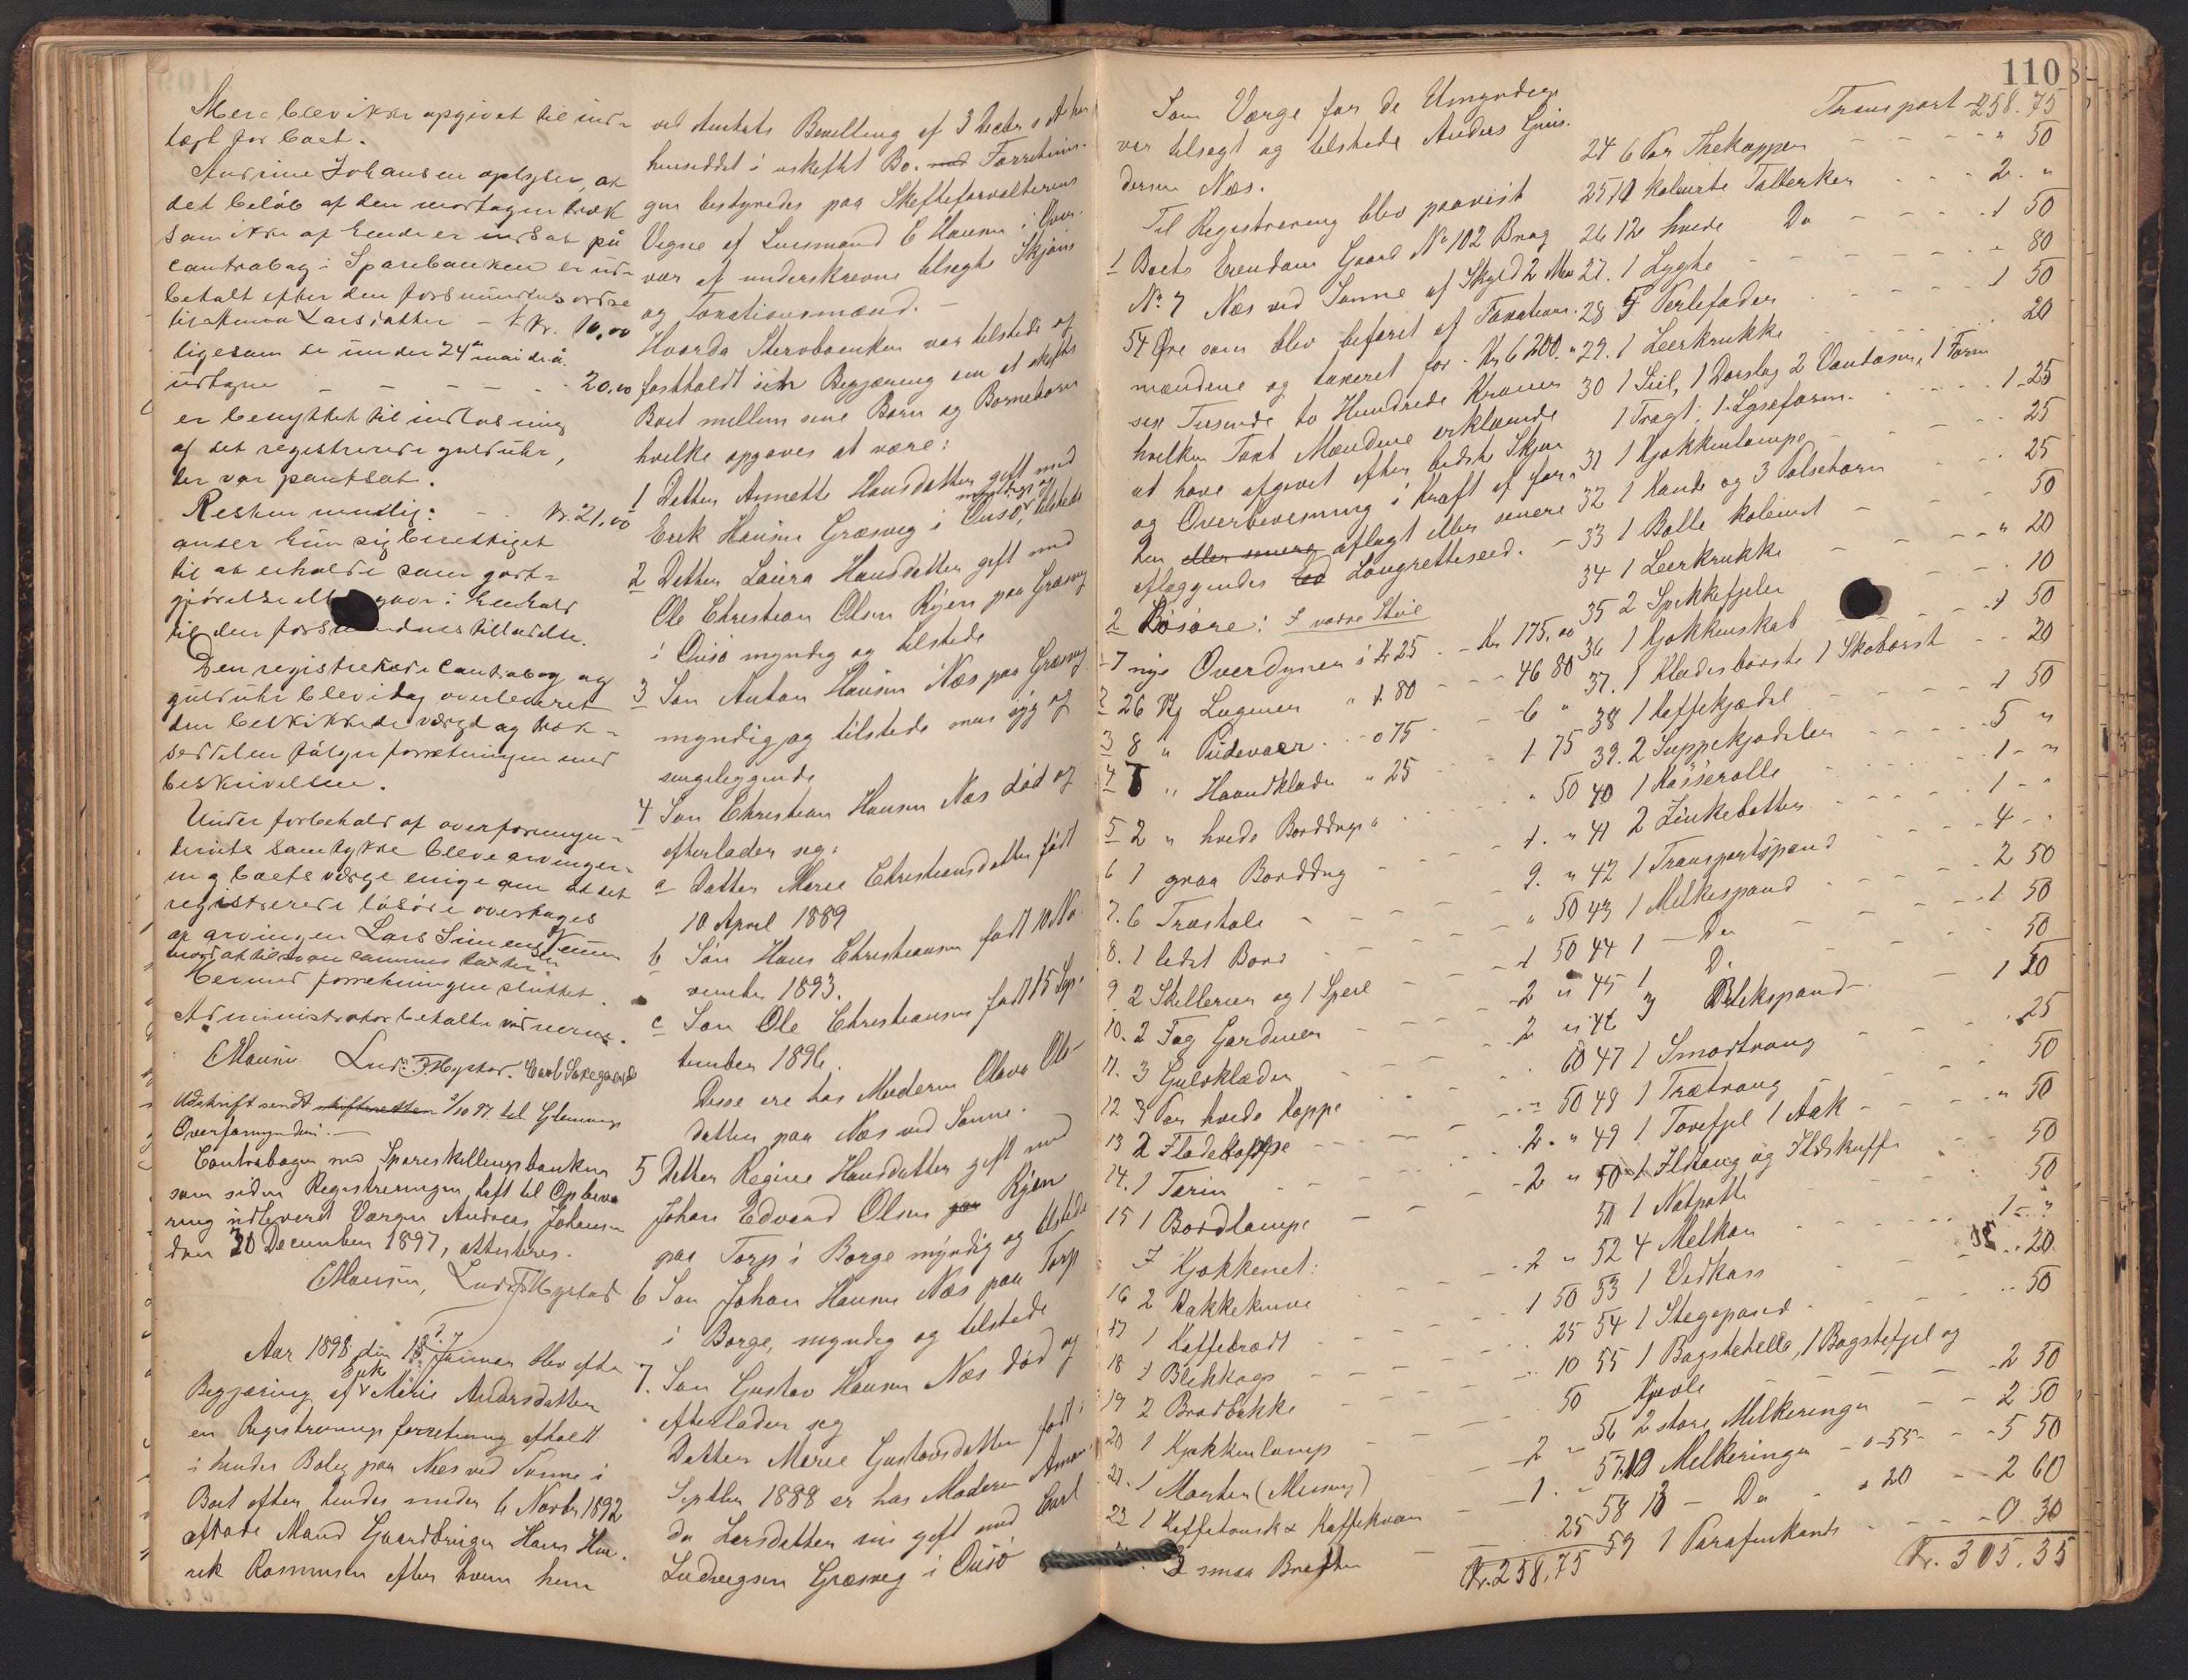 Mere blev ikke opgivet til ind-
tægt for boet.
Andrine Johansen oplyser, at
det beløb af den mortagen træk
som ikke af hende er indsat på
contrabog i Sparebanken er ud-
betalt efter den forsvundnes ordre
til Larsdatter - Kr. 10,00
ligesom de under 24de mai d. å.
udtagne - - - - 20,00
er benyttet til indløsning
af det registrerede gulduhr,
der var pantsat.
Resten nemlig: - - Kr. 21,00
anser hun sig berettiget
til at erholde som godt-
gjørelse
til den forsvundnes tilladelse.
Den registrerede contrabog og
gulduhr blev idag overleveret
den beskikkede værge og
seddelen følger forretningen med
beskrivelsen.
Under forbehold af overformyn-
deriets samtykke bleve arvingen-
e og boets værge enige om at det
registrerede løsøre overtages
af arvingen Lars Simensen
mod at tilsvare sammes taxter.
Hermed forretningen sluttet.
Administrator betalte vidnerne.
CHansen Ludv. F. Mystad. Carl
Udskrift sendt skifteretten 2/10 97 til Glemminge
Overformynderi.-
Contrabogen med Spareskillingsbanken
som siden Registreringen havt til Opbeva
ring udleveret Værgen Andreas Johansen
den 20 December 1897, attesteres.
CHansen, Ludv F Mystad
Aar 1898 den 13 Januar blev efter
Begjæring af Enke Marie Andersdatter
en Registrerings forretning afholdt
i hendes Bolig paa Næs ved Sanne i
Boet efter hendes under 6 Novbr 1892
afdøde Mand Gaardbruger Hans Hen-
rik Rasmusen efter hvem hun
ved Amtets Bevilling af 3 Decbr s A har
hensiddet i uskiftet Bo. Forretnin-
gen bestyredes paa Skifteforvalterens
Vegne af Lensmand C Hansen i Over-
vær af underskrevne tilsagte Skjøns
og Taxationsmænd.-
Hvorda Stervboenken var tilstede og
fastholdt sin Begjæring om at skifte
Boet mellem sine Børn og Børnebørn
hvilke opgaves at være:
1 Datter Annette Hansdatter gift med
Erik Hansen Græsvig i Onsø, myndige og tilstede
2 Datter Laura Hansdatter gift med
Ole Christian Olsen Kjen paa Græsvig
i Onsø myndig og tilstede
3 Søn Anton Hansen Næs paa Græsvig
myndig og tilstede men syg og
sengeliggende
4 Søn Christian Hansen Næs død og
efterlader sig:
a Datter Marie Christiansdatter født
10 April 1889
b Søn Hans Christiansen født 10 No-
vember 1893.
c Søn Ole Christiansen født 15 Sep-
tember 1896.
Disse ere hos Moderen Olava Ols-
datter paa Næs ved Sanne.
5 Datter Regine Hansdatter gift med
Johan Edvard Olsen Kjen
paa Torp i Borge myndig og tilstede
6 Søn Johan Hansen Næs paa Torp
i Borge, myndig og tilstede
7. Søn Gustav Hansen Næs død og
efterlader sig
Datter Marie Gustavsdatter født i
Septbr 1888 er hos Moderen Aman-
da Larsdatter nu gift med Carl
Ludvigsen Græsvig i Onsø
110
Som Værge for de Umyndige
var tilsagt og tilstede Anders Gun-
dersen Næs.
Til Registrering blev paavist
1 Boets Eiendom Gaard No 102 Brug
No 7 Næs ved Sanne af Skyld 2 Mrk
54 Øre som blev befaret af Taxations-
mændene og taxeret for Kr 6200."
sex Tusinde to Hundrede Kroner
hvilken Taxt Mændene erklærede
at have afgivet efter bedste Skjøn
og Overbevisning i Kraft af før-
hen eller senere aflagt eller senere
aflæggendes Ed Laugrettesed.
2 Løsøre: I værre Stue
1 7 nye Overdyner á Kr 25 - Kr 175,00
2 26 Kg Lagener " 1.80 - - 46 80
3 8 " Pudevaer - 0 75 - 6 "
4 7 " Haandklæder " 25 - 1 75
5 2 " hvide Borddug " " 50
6 1 graa Borddug - - 1. "
7. 6 Træstole - - 9. "
8. 1 lidet Bord - " 50
9 2 Skillerier og 1 Speil - - 1 50
10. 2 Fag Gardiner - - 2 "
11. 3 Gulvklæder - - 2 "
12 3 Par hvide Koppe - - 60
13 2 Flødekoppe - - 50
14. 1 Terin - - 2. "
15 1 Bordlampe - - 2 "
I Kjøkkenet:
16 2 Hakkeknive - 2 "
17 1 Kaffebrædt - - 1 50
18 1 Blikkage - - 25
19 2 Brødbakke - - 10
20 1 Kjøkkenlampe - - 50
21. 1 Morter (Messing) - - 2 -
22 1 Kaffetønde & Kaffekværn - 1. -
2 smaa Bretter - 25
Kr. 258,75
Transport - 258.75
24 6 Par Thekopper - - - " 50
25 10 kolørte Tallerker - - 2. "
26 12 hvide Do - - 1 50
27. 1 Lygte - - - " 80
28 5 Perlefader - - 1 50
29. 1 Leerkrukke - - 20
30 1 Siil, 1 Dørslag 2 Vandøser, 1 Form
1 Tragt, 1 Lyseform - - 1 25
31 1 Kjøkkenlampe - - 25
32 1 Kande og 3 Pølsehorn - - 25
33 1 Bolle koleurt - - 50
34 1 Leerkrukke - - " 20
35 2 Spekkefjeler - - 10
36 1 Kjøkkenskab - - 1 50
37. 1 Klædesbørste 1 Skobørst - - 20
38 1 Kaffekjædel - - 1 50
39. 2 Suppekjedeler - - 5 "
40 1 Kasserolle - - 1 - "
41 2 Zinkebøtter - - 1 - "
42 1 Transportspand - - 4 - "
43 1 Melkespand - - 2 50
44 1 - Do - - 1 50
45 1 Do - - 50
46 3 Blikspand - - 1 20
47 1 Smørtraug - - 25
48 1 Trætraug - - 50
49 1 Torefjel 1 Aak - - " 50
50 1 Ildtang og Ildskuffe - - 50
51 1 Natpotte - - 50
52 4 Melkar - - 1 - "
53 1 Vedkass - - 20
54 1 Stegepand - - 50
55 1 Bagstehelle, 1 Bagstefjel og
Kjevle - - 2 50
56 2 store Melkeringer - - 2 50
57. 10 Melkeringer - á 55 - - 5 50
58 13 - Do - á 20 - - 2 60
59 1 Parafinkande - - 0 30
Kr. 305.35